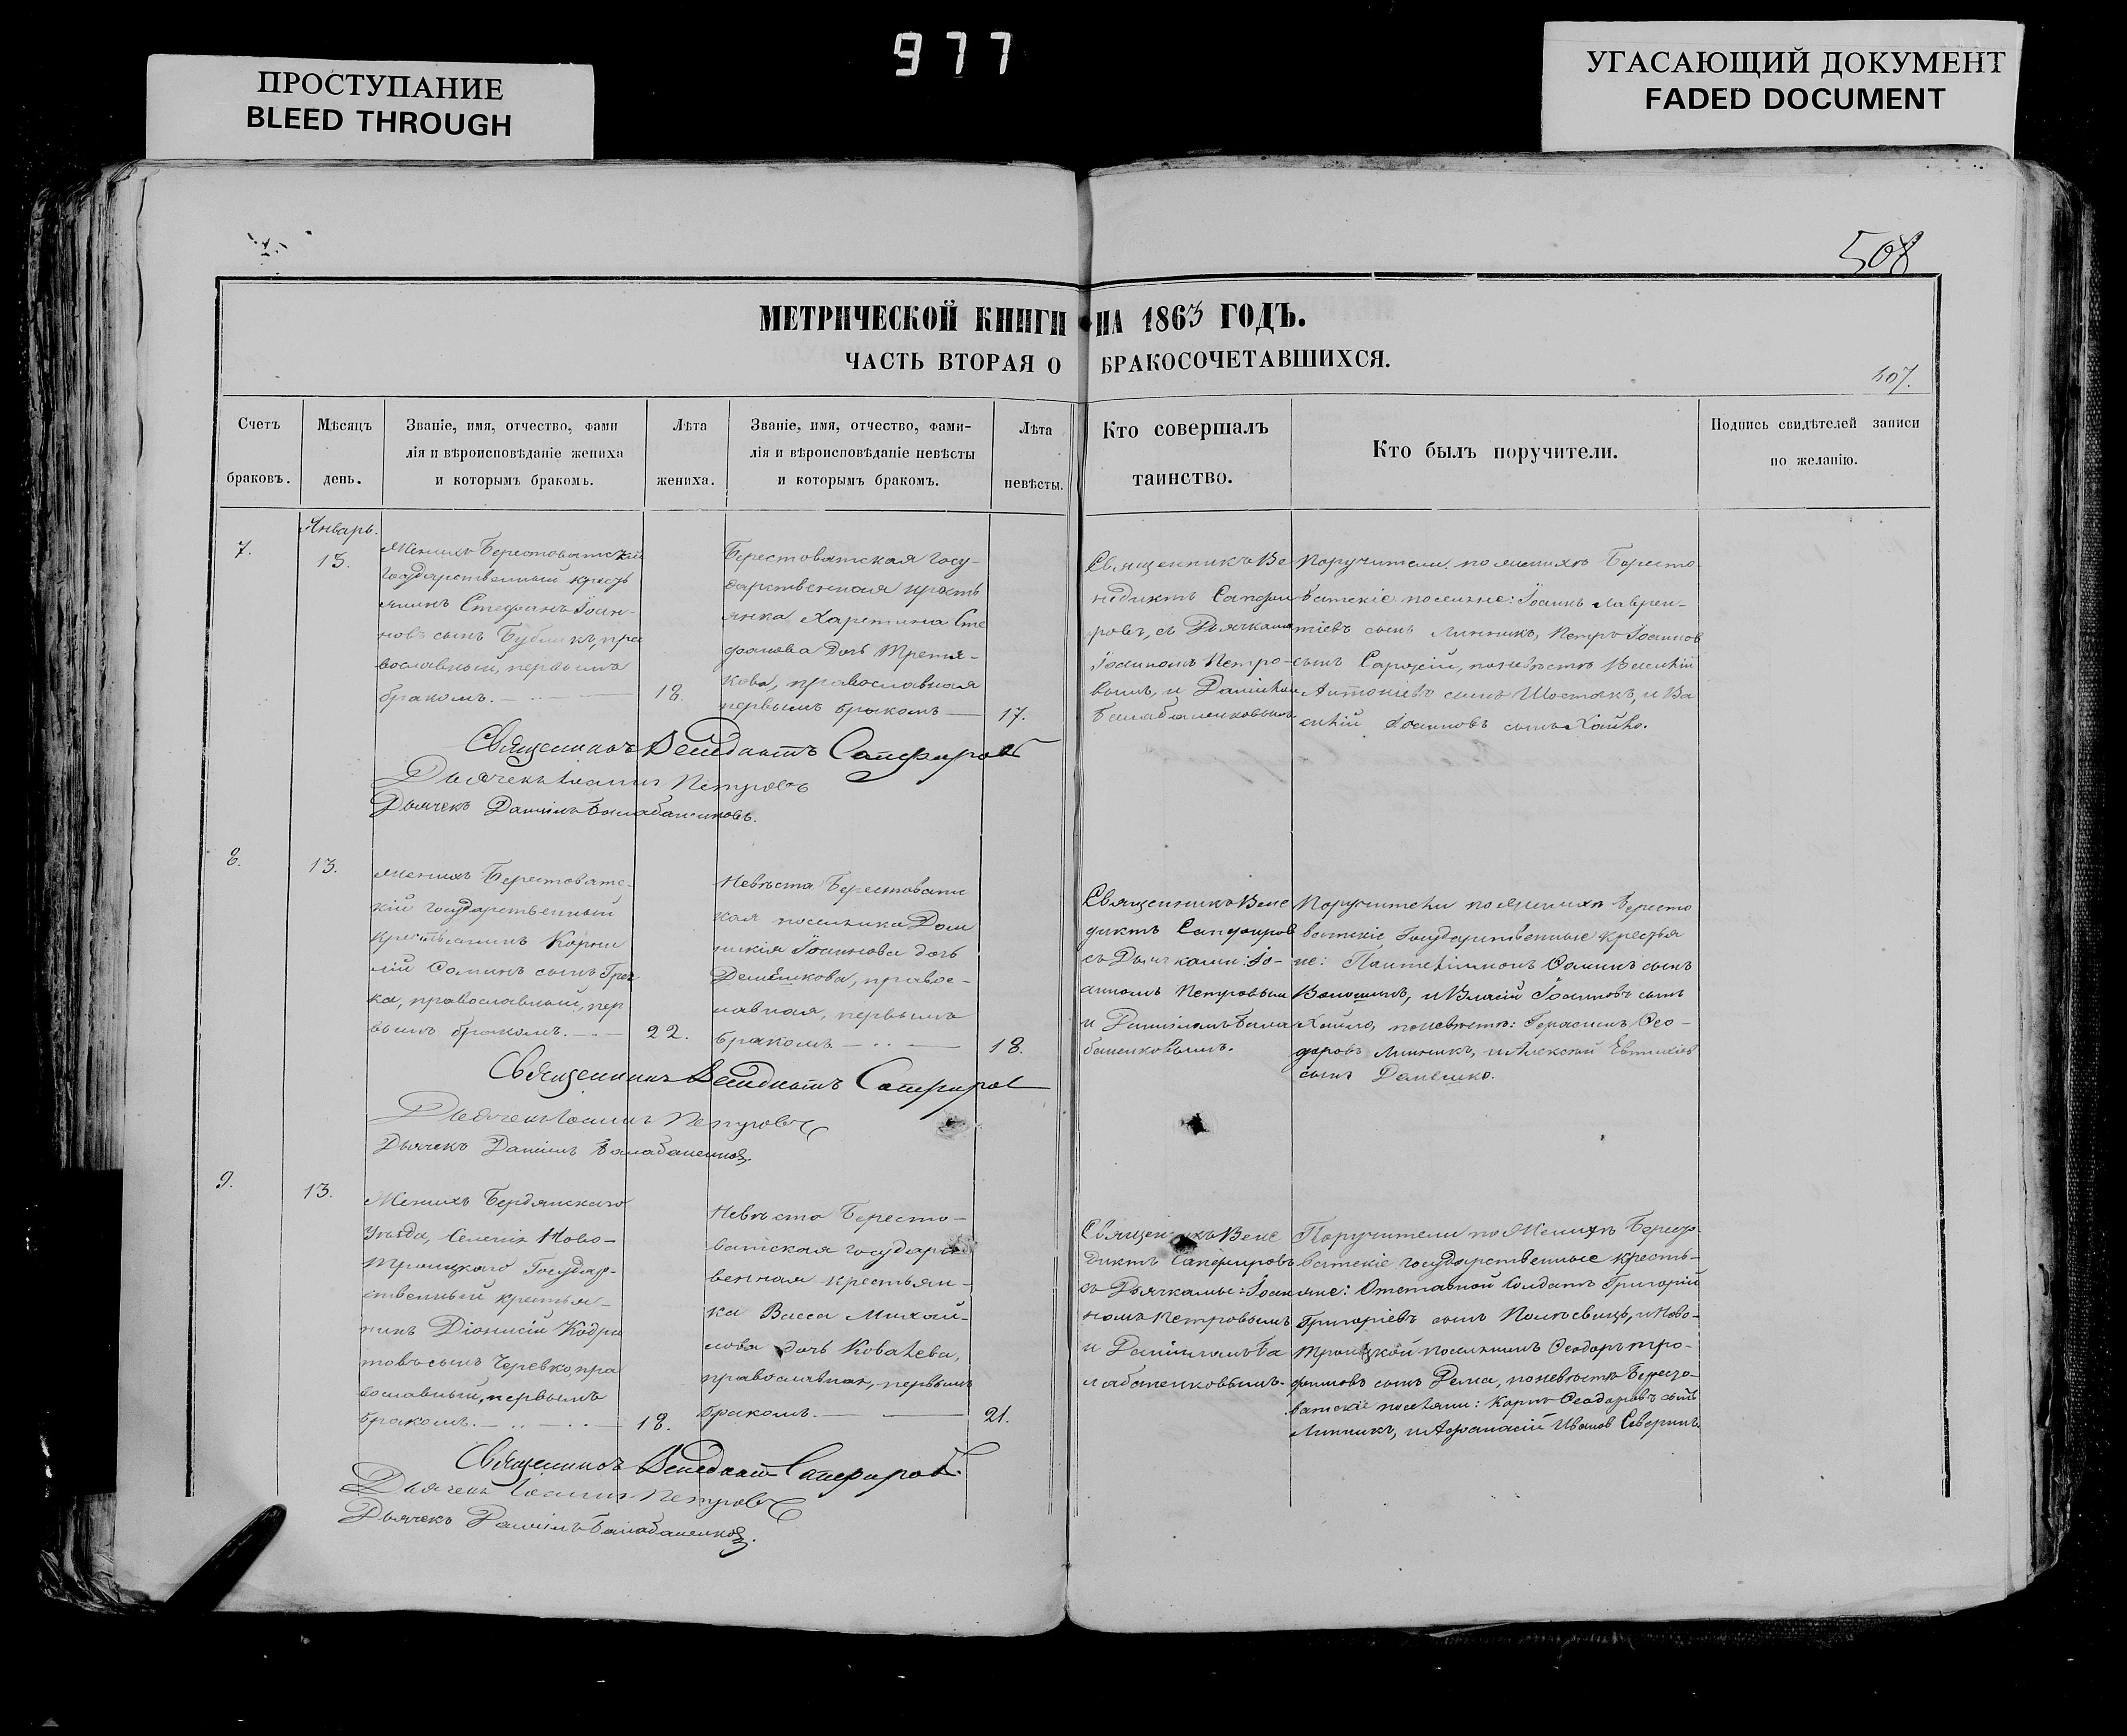 977
ПРОСТУПАНИЕ
BLEED THROUGH
УГАСАЮЩИЙ ДОКУМЕНТ
FADED DOCUMENT
508
МЕТРИЧЕСКОЙ КНИГИ НА 1863 ГОДЪ.
ЧАСТЬ ВТОРАЯ О БРАКОСОЧЕТАВШИХСЯ.
507.
Счетъ
браковъ.
Мѣсяцъ
день.
Званіе, имя, отчество, фами
лія и вѣроисповѣданіе жениха
и которымъ бракомъ.
Лѣта
жениха.
Званіе, имя, отчество, фами-
лія и вѣроисповѣданіе невѣсты
и которымъ бракомъ.
Лѣта
невѣсты.
Кто совершалъ
таинство.
Кто былъ поручители.
Подпись свидѣтелей записи
по желанію.
7.
Январь.
13.
Женихъ Берестоватскій
государственный кресть
янинъ Стефанъ Іоан-
новъ сынъ Бубликъ, пра
вославный, первымъ
бракомъ.
18.
Берестоватская госу-
дарственная кресть
янка Харитина Сте
фанова дочь Третья-
кова, православная
первымъ бракомъ
17.
Священникъ Ве
недиктъ Сапфи
ровъ, съ Дьячками
Іоанномъ Петро-
вымъ, и Даніиломъ
Балабаненковымъ
Поручители по женихѣ Бересто-
ватскіе поселяне: Іоаннъ Лаврен-
тіевъ сынъ Линникъ, Петръ Іоанновъ
сынъ, по невѣстѣ
Антоніевъ сынъ Шостакъ, и Ва
силій Іоанновъ сынъ Хайло.
Священникъ Венедиктъ Сапфировъ
Дьячекъ Іоаннъ Петровъ
Дьячекъ Даніилъ Балабаненковъ.
8.
13.
Женихъ Берестоватс-
кій государственный
крестьянинъ Корни
лій Фоминъ сынъ Греч
ка, православный, пер
вымъ бракомъ.
22.
Невѣста Берестоватс
кая поселянка Дом
никія Іоаннова дочь
Демешкова, правос-
лавная, первымъ
бракомъ
18.
Священникъ Вене
диктъ Сапфировъ
съ Дьячками: Іо-
анномъ Петровымъ
и Даніиломъ Бала
баненковымъ.
Поручители по женихѣ Бересто
ватскіе государственные крестья
не: Пантелиимонъ Фоминъ сынъ
Волошинъ, и Власій Іоанновъ сынъ
Хайло, по невѣстѣ: Герасимъ Ѳео-
доровъ Линникъ, и Алексій Евтихіевъ
сынъ Демешко.
Священникъ Венедиктъ Сапфировъ
Дьячекъ Іоаннъ Петровъ
Дьячекъ Даніилъ Балабаненковъ.
9.
13.
Женихъ Бердянскаго
Уѣзда, Селенія Ново-
троицкаго Государ-
ственный крестья-
нинъ Діонисій Кодра
товъ сынъ Черевко, пра
вославный, первымъ
бракомъ.
18.
Невѣста Бересто-
ватская государст
венная крестьян-
ка Васса Михай-
лова дочь Ковалева,
православная, первымъ
бракомъ.
21.
Священникъ Вене
диктъ Сапфировъ
съ Дьячками: Іоан
номъ Петровымъ
и Даніиломъ Ба
лабаненковымъ.
Поручители по Женихѣ Бересто-
ватскіе государственные кресть-
яне: Отставной Солдатъ Григорій
Григоріевъ сынъ, и Ново-
троицкой поселянинъ Ѳеодоръ Тро-
фимовъ сынъ Дема, по невѣстѣ Бересто-
ватскіе поселяне: Карпъ Ѳеодоровъ сынъ
Линникъ, и Афанасій Ивановъ Северинъ.
Священникъ Венедиктъ Сапфировъ.
Дьячекъ Іоаннъ Петровъ
Дьячекъ Даніилъ Балабаненковъ.